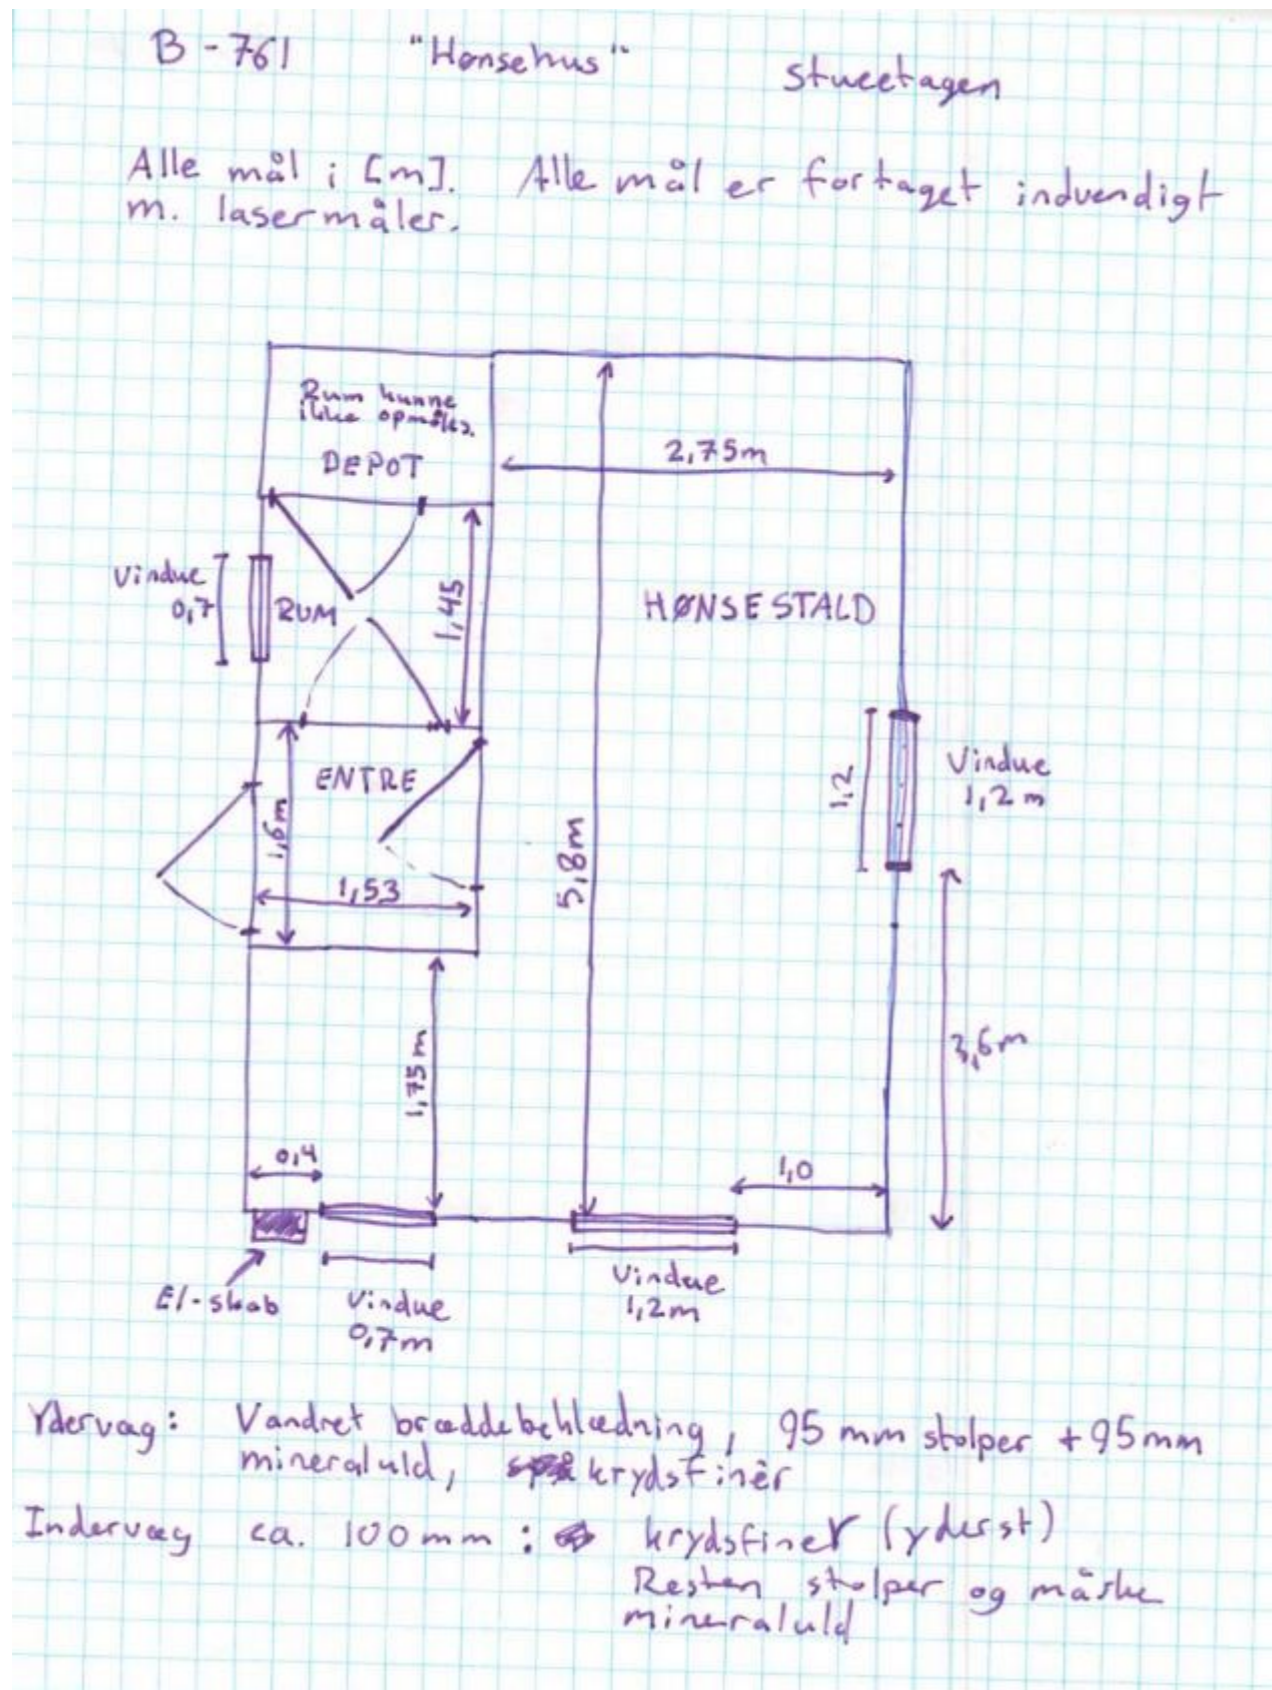 B-761 "Hønsehus" Stueetagen
Alle mål i [m]. Alle mål er fortaget indvendigt
m. lasermåler.
Rum kunne
ikke opmåles.
DEPOT
2,75m
Vindue
0,7
RUM
1,45
HØNSESTALD
ENTRE
1,6m
1,53
5,8m
1,2
Vindue
1,2m
3,6m
1,75m
0,4
1,0
El-skab
Vindue
0,7m
Vindue
1,2m
Ydervæg: Vandret bræddebeklædning, 95 mm stolper + 95mm
mineraluld, krydsfinèr
Indervæg ca. 100mm: krydsfiner (yderst)
Resten stolper og måske
mineraluld